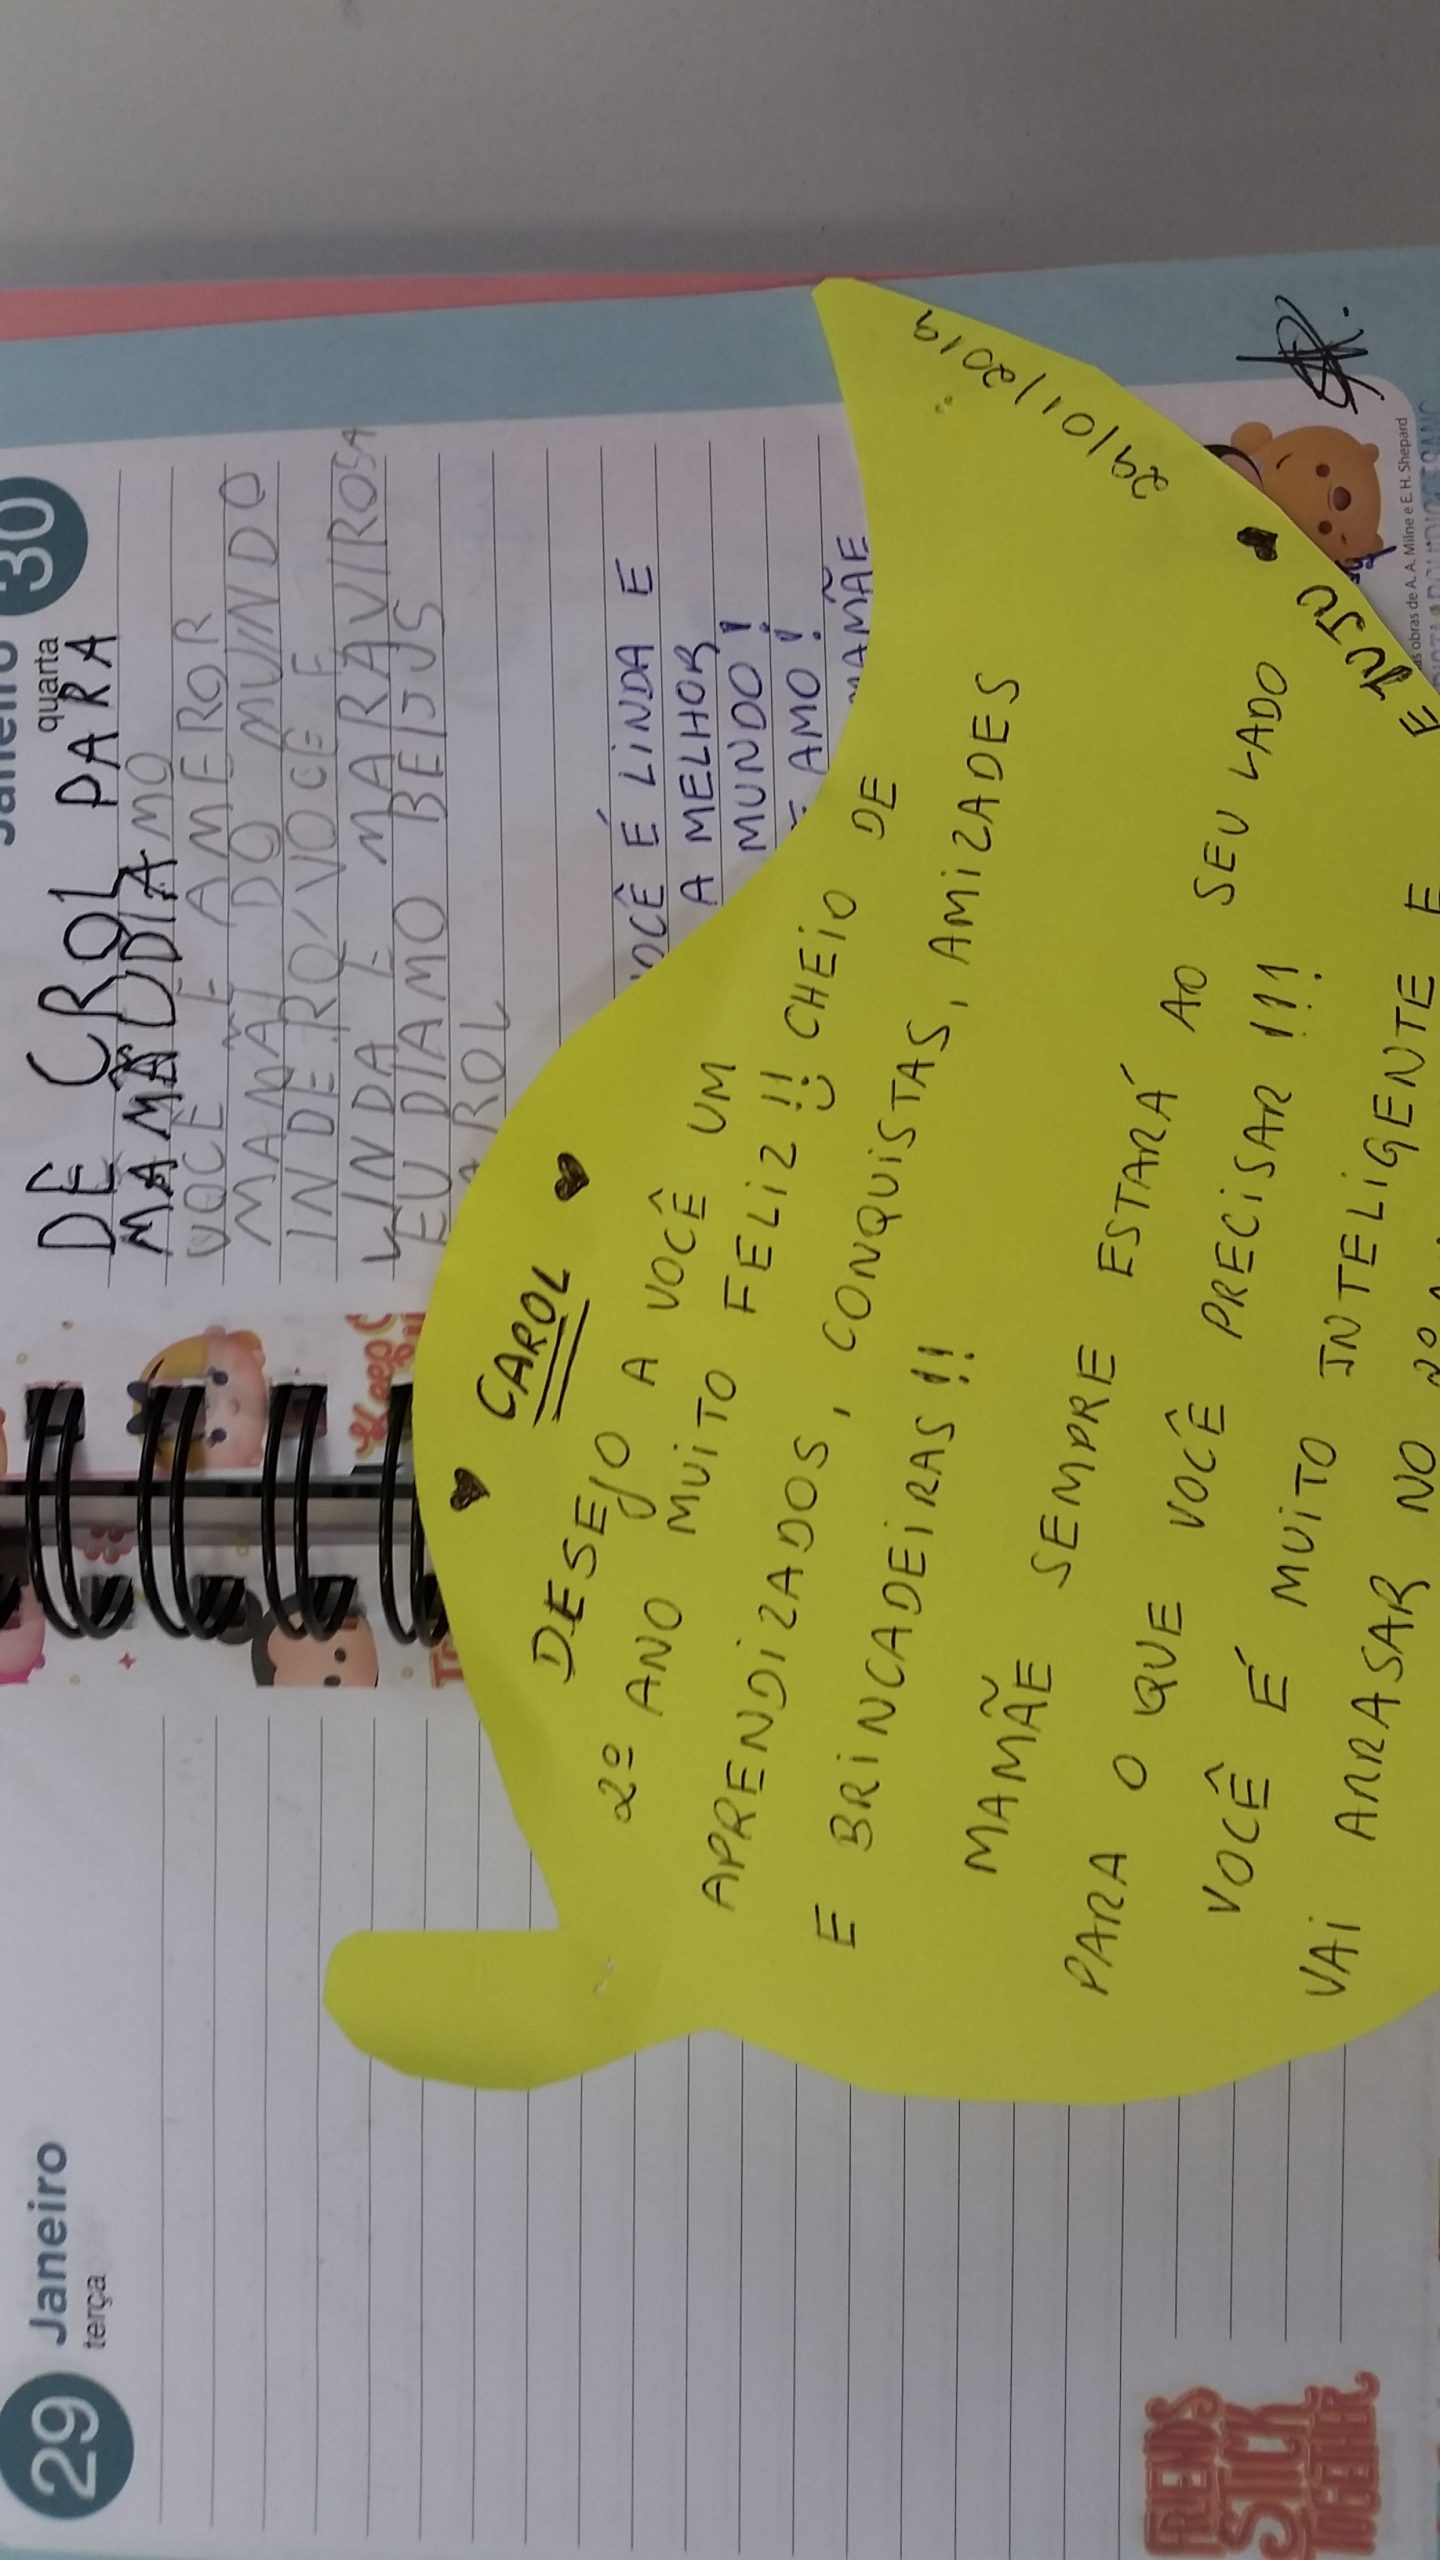 29 Janeiro
terça
FRIENDS
STICK
TOGETHER
30
quarta
DE CROL PARA
MAMÃE DIA
VOCÊ É AMEROR
MAMÃI DO MUNDO
VOCE E
LINDA E MARAVIROSA
EU DIAMO BEIJS
AROL
VOCÊ É LINDA E
A MELHOR
MUNDO!
AMO!
MAMÃE
CAROL
DESEJO A VOCÊ UM
2º ANO MUITO FELIZ!! CHEIO DE
APRENDIZADOS, CONQUISTAS, AMIZADES
E BRINCADEIRAS!!
MAMÃE SEMPRE ESTARÁ AO SEU LADO
PARA O QUE VOCÊ PRECISAR!!!
VOCÊ É MUITO INTELIGENTE E
VAI ARRASAR NO 2º
E JUJU
29/01/2019
as obras de A. A. Milne e E. H. Shepard